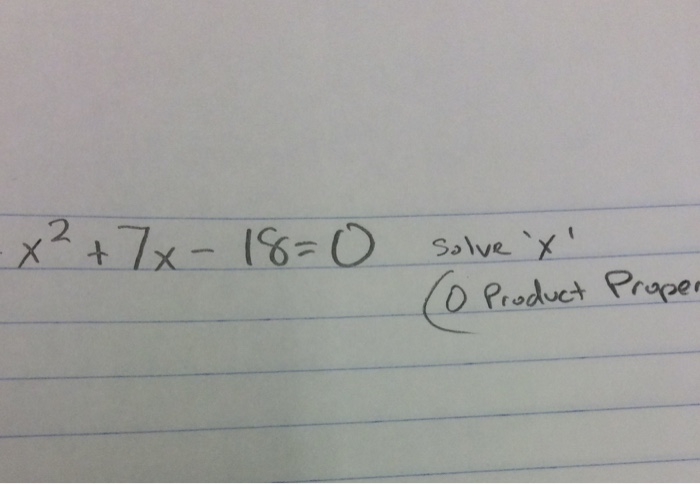 x² + 7x - 18 = 0 Solve 'x'
(0 Product Proper